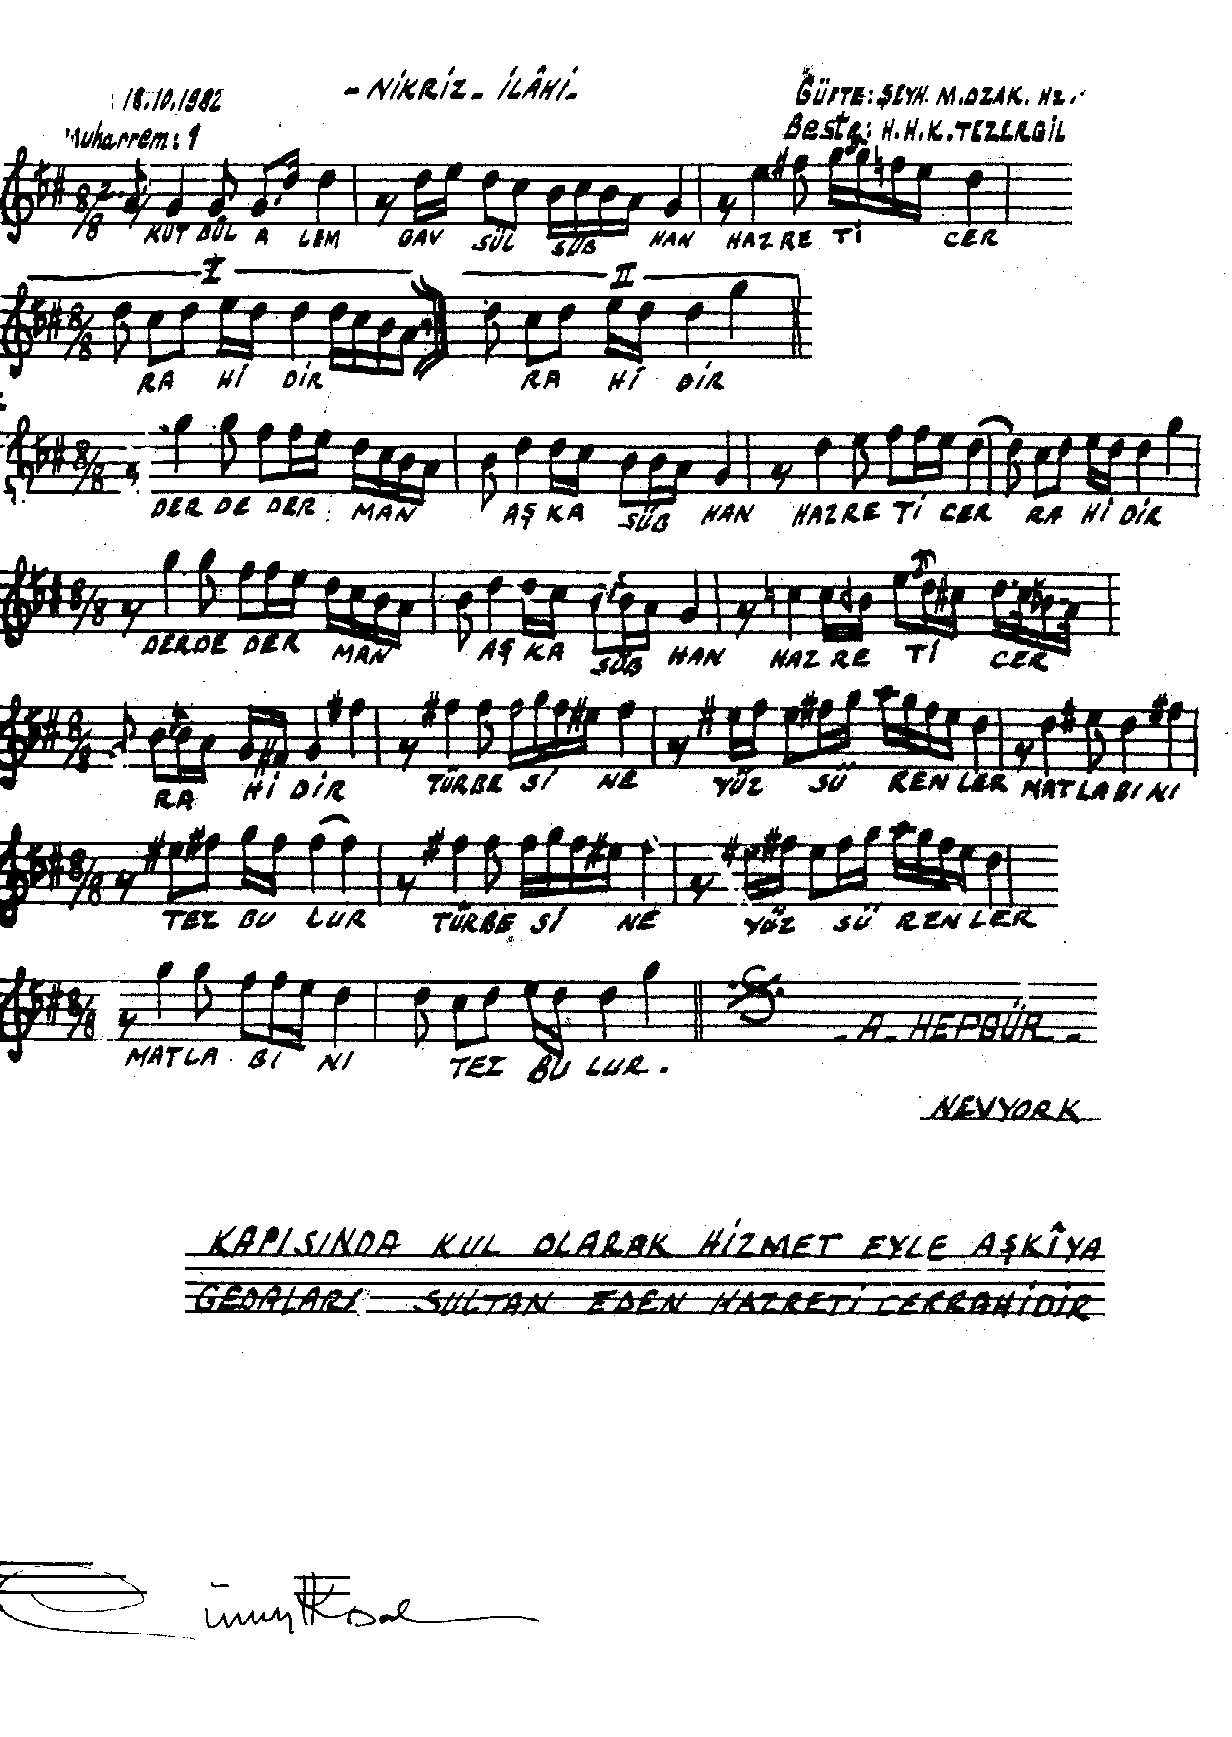 18.10.1982 - NİKRİZ - İLÂHİ - GÜFTE: ŞEYH. M. OZAK. HZ.
Muharrem: 1 Beste: H.H.K. TEZERGİL
8/8 KUT BÜL A LEM GAV SÜL SÜB HAN HAZ RE Tİ CER
I II
8/8 RA Hİ DİR RA Hİ DİR
8/8 DER DE DER MAN AŞ KA SÜB HAN HAZ RE Tİ CER RA Hİ DİR
8/8 DER DE DER MAN AŞ KA SÜB HAN HAZ RE Tİ CER
8/8 RA Hİ DİR TÜR BE Sİ NE YÜZ SÜ REN LER MAT LA BI NI
8/8 TEZ BU LUR TÜR BE Sİ NE YÜZ SÜ REN LER
8/8 MAT LA BI NI TEZ BU LUR. - A. HEPGÜR -
NEVYORK
KAPISINDA KUL OLARAK HİZMET EYLE AŞKÎYA
GEDALARI SULTAN EDEN HAZRETİ CERRAHİDİR